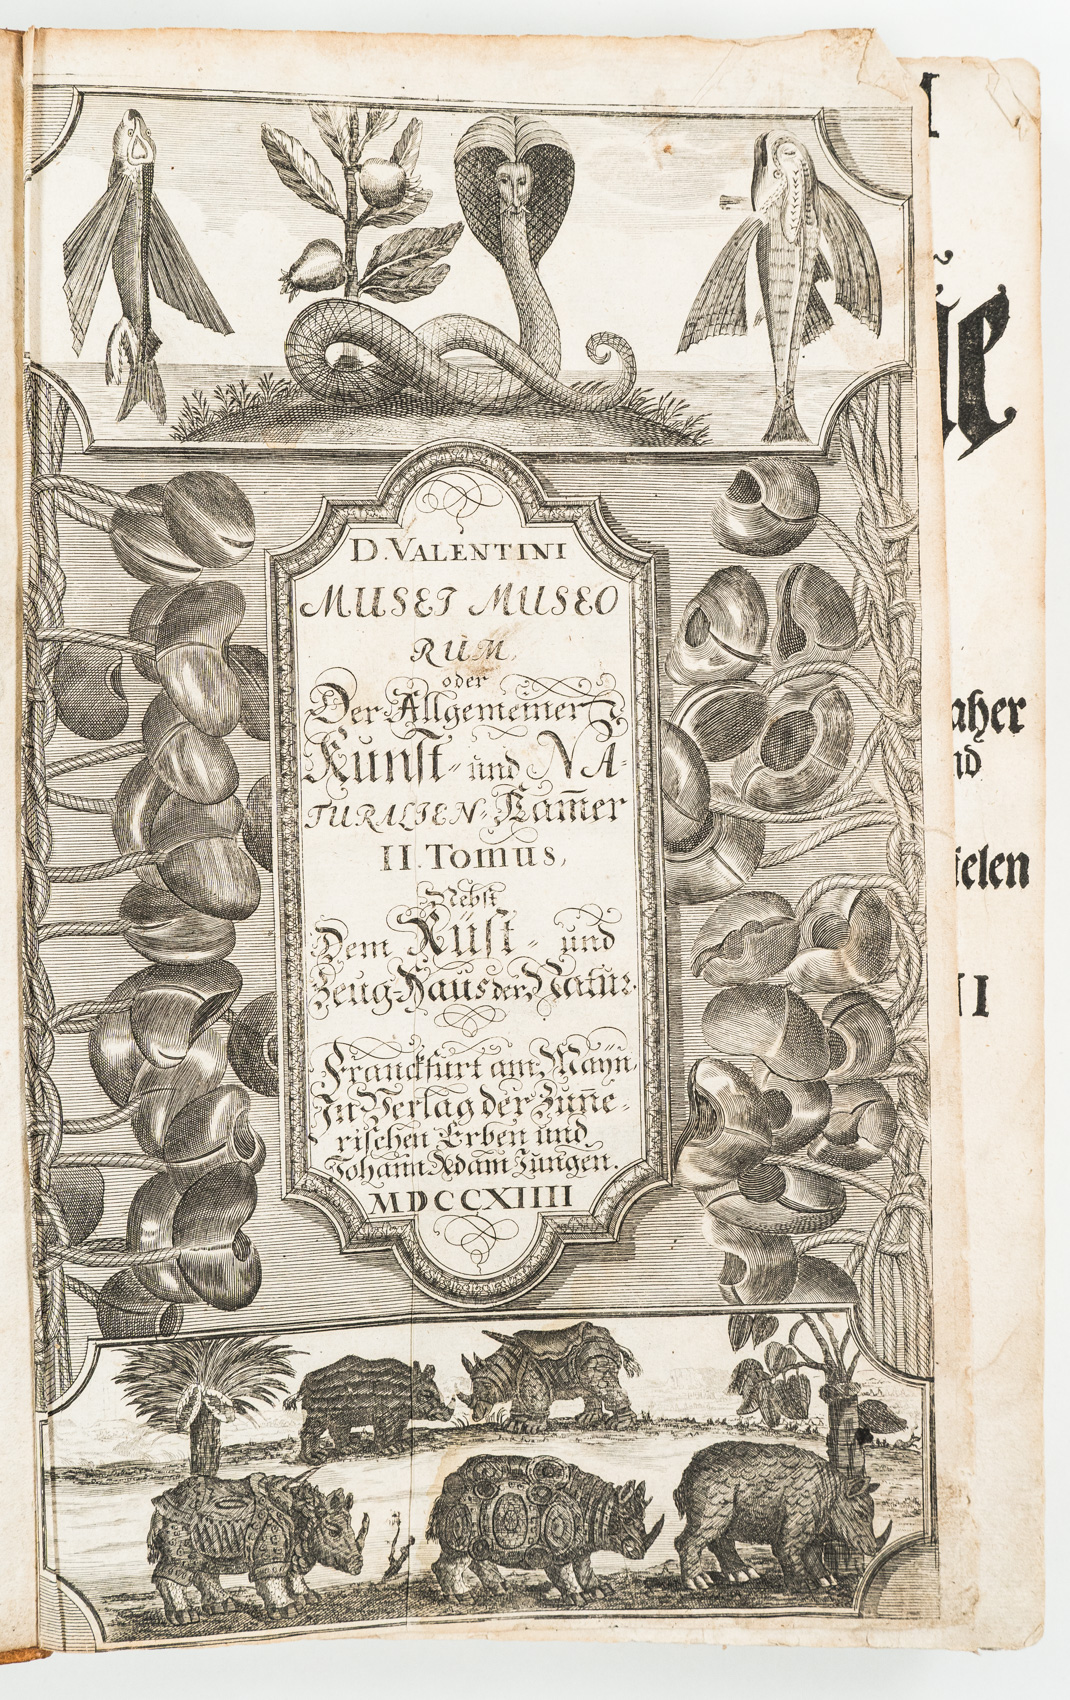 D. VALENTINI
MUSEI MUSEO
RUM,
oder
Der Allgemeiner
Kunst- und NA-
TURALIEN-Kam̄er
II. Tomus,
Nebst
Dem Rüst- und
Zeug-Haus der Natur.
Franckfurt am Maÿn,
In Verlag der Zun̄e-
rischen Erben und
Johann Adam Jungen.
MDCCXIIII
aher
nd
ielen
II